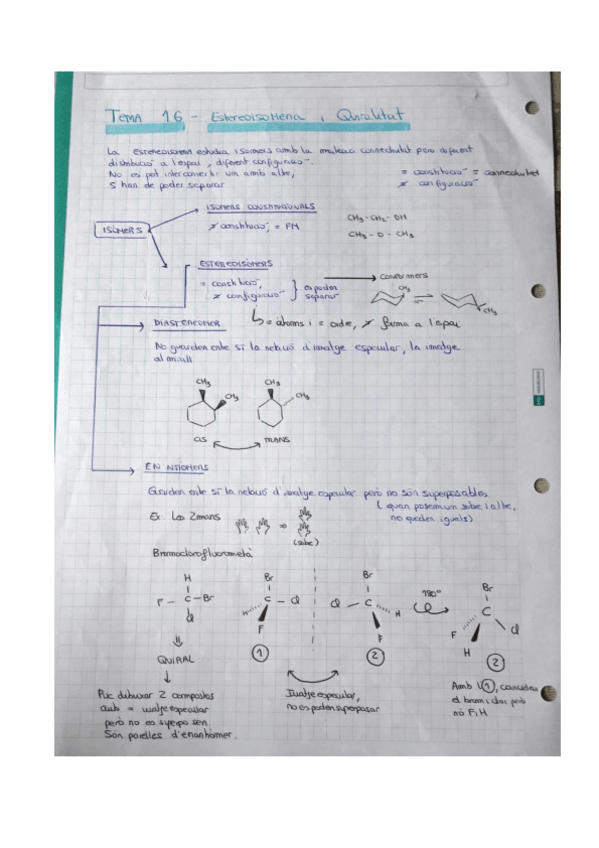 TEMA 16 - Estereoisomeria i Quiralitat
La estereoisomeria estudia isomers amb la mateixa connectivitat pero diferent
distribució a l'espai, diferent configuració.
No es pot interconvertir un amb altre,
S'han de poder separar
= constitució = connectivitat
≠ configuració
ISÒMERS
ISOMERS CONSTITUCIONALS
≠ constitució, = PM
CH3-CH2-OH
CH3-O-CH3
ESTEREOISÒMERS
= constitució,
≠ configuració
es poden
separar
Conformers
CH3
CH3
= àtoms i = ordre, ≠ forma a l'espai
DIASTEREOMER
No guarden entre si la relació d'imatge especular, la imatge
al mirall
CH3
CH3
CH3
CH3
CIS
TRANS
ENANTIOMERS
Guarden entre si la relació d'imatge especular però no són superposables
(quan posem un sobre l'altre,
no queden iguals)
Ex. Les 2 mans
=>
(sobre)
Bromoclorofluorometà
H
F - C - Br
Cl
QUIRAL
Puc dibuixar 2 compostos
amb = imatge especular
però no es superposen.
Són parelles d'enantiòmer.
Br
H C - Cl
F
1
Imatge especular,
no es poden superposar
Br
Cl - C H
F
2
180°
Br
C
F Cl
H
2
Amb l'1, coincideix
el brom i clor però
no F i H